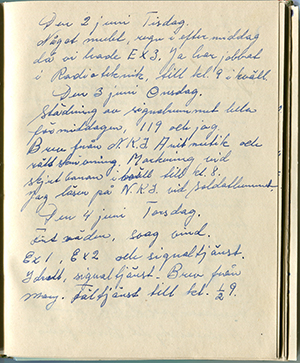 Den 2 juni Tisdag.
Något mulet, regn i eftermiddag
då vi hade Ex 3. Ja har jobbat
i Radioteknik, till kl 9 i kväll.
Den 3 juni Onsdag.
Städning av signalrummet hela
förmiddagen, 119 och jag.
Brev från N.K.I. Aritmetik och
rättskrivning. Markering vid
skjutbanan i kväll till kl. 8.
Jag läser på N.K.I. vid soldathemmet.
Den 4 juni Torsdag.
väder, svag vind.
Ex 1, Ex 2 och signaltjänst.
Idrott, signaltjänst. Brev från
Mary. Fälttjänst till kl. ½ 9.